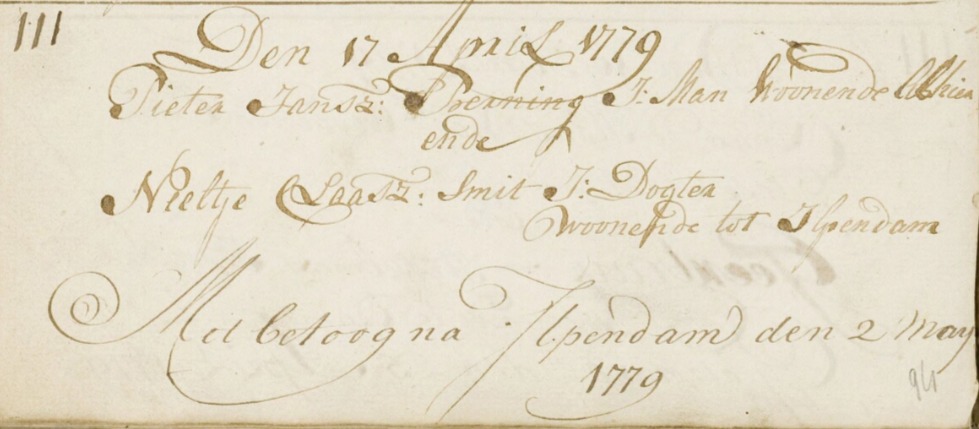 111
Den 17 April 1779
Pieter Jansz: Sperning J: Man Woonende Alhier
ende
Nieltje Claasz: Smit J: Dogter
Woonende tot Ilpendam
Met betoog na Ilpendam den 2 May
1779